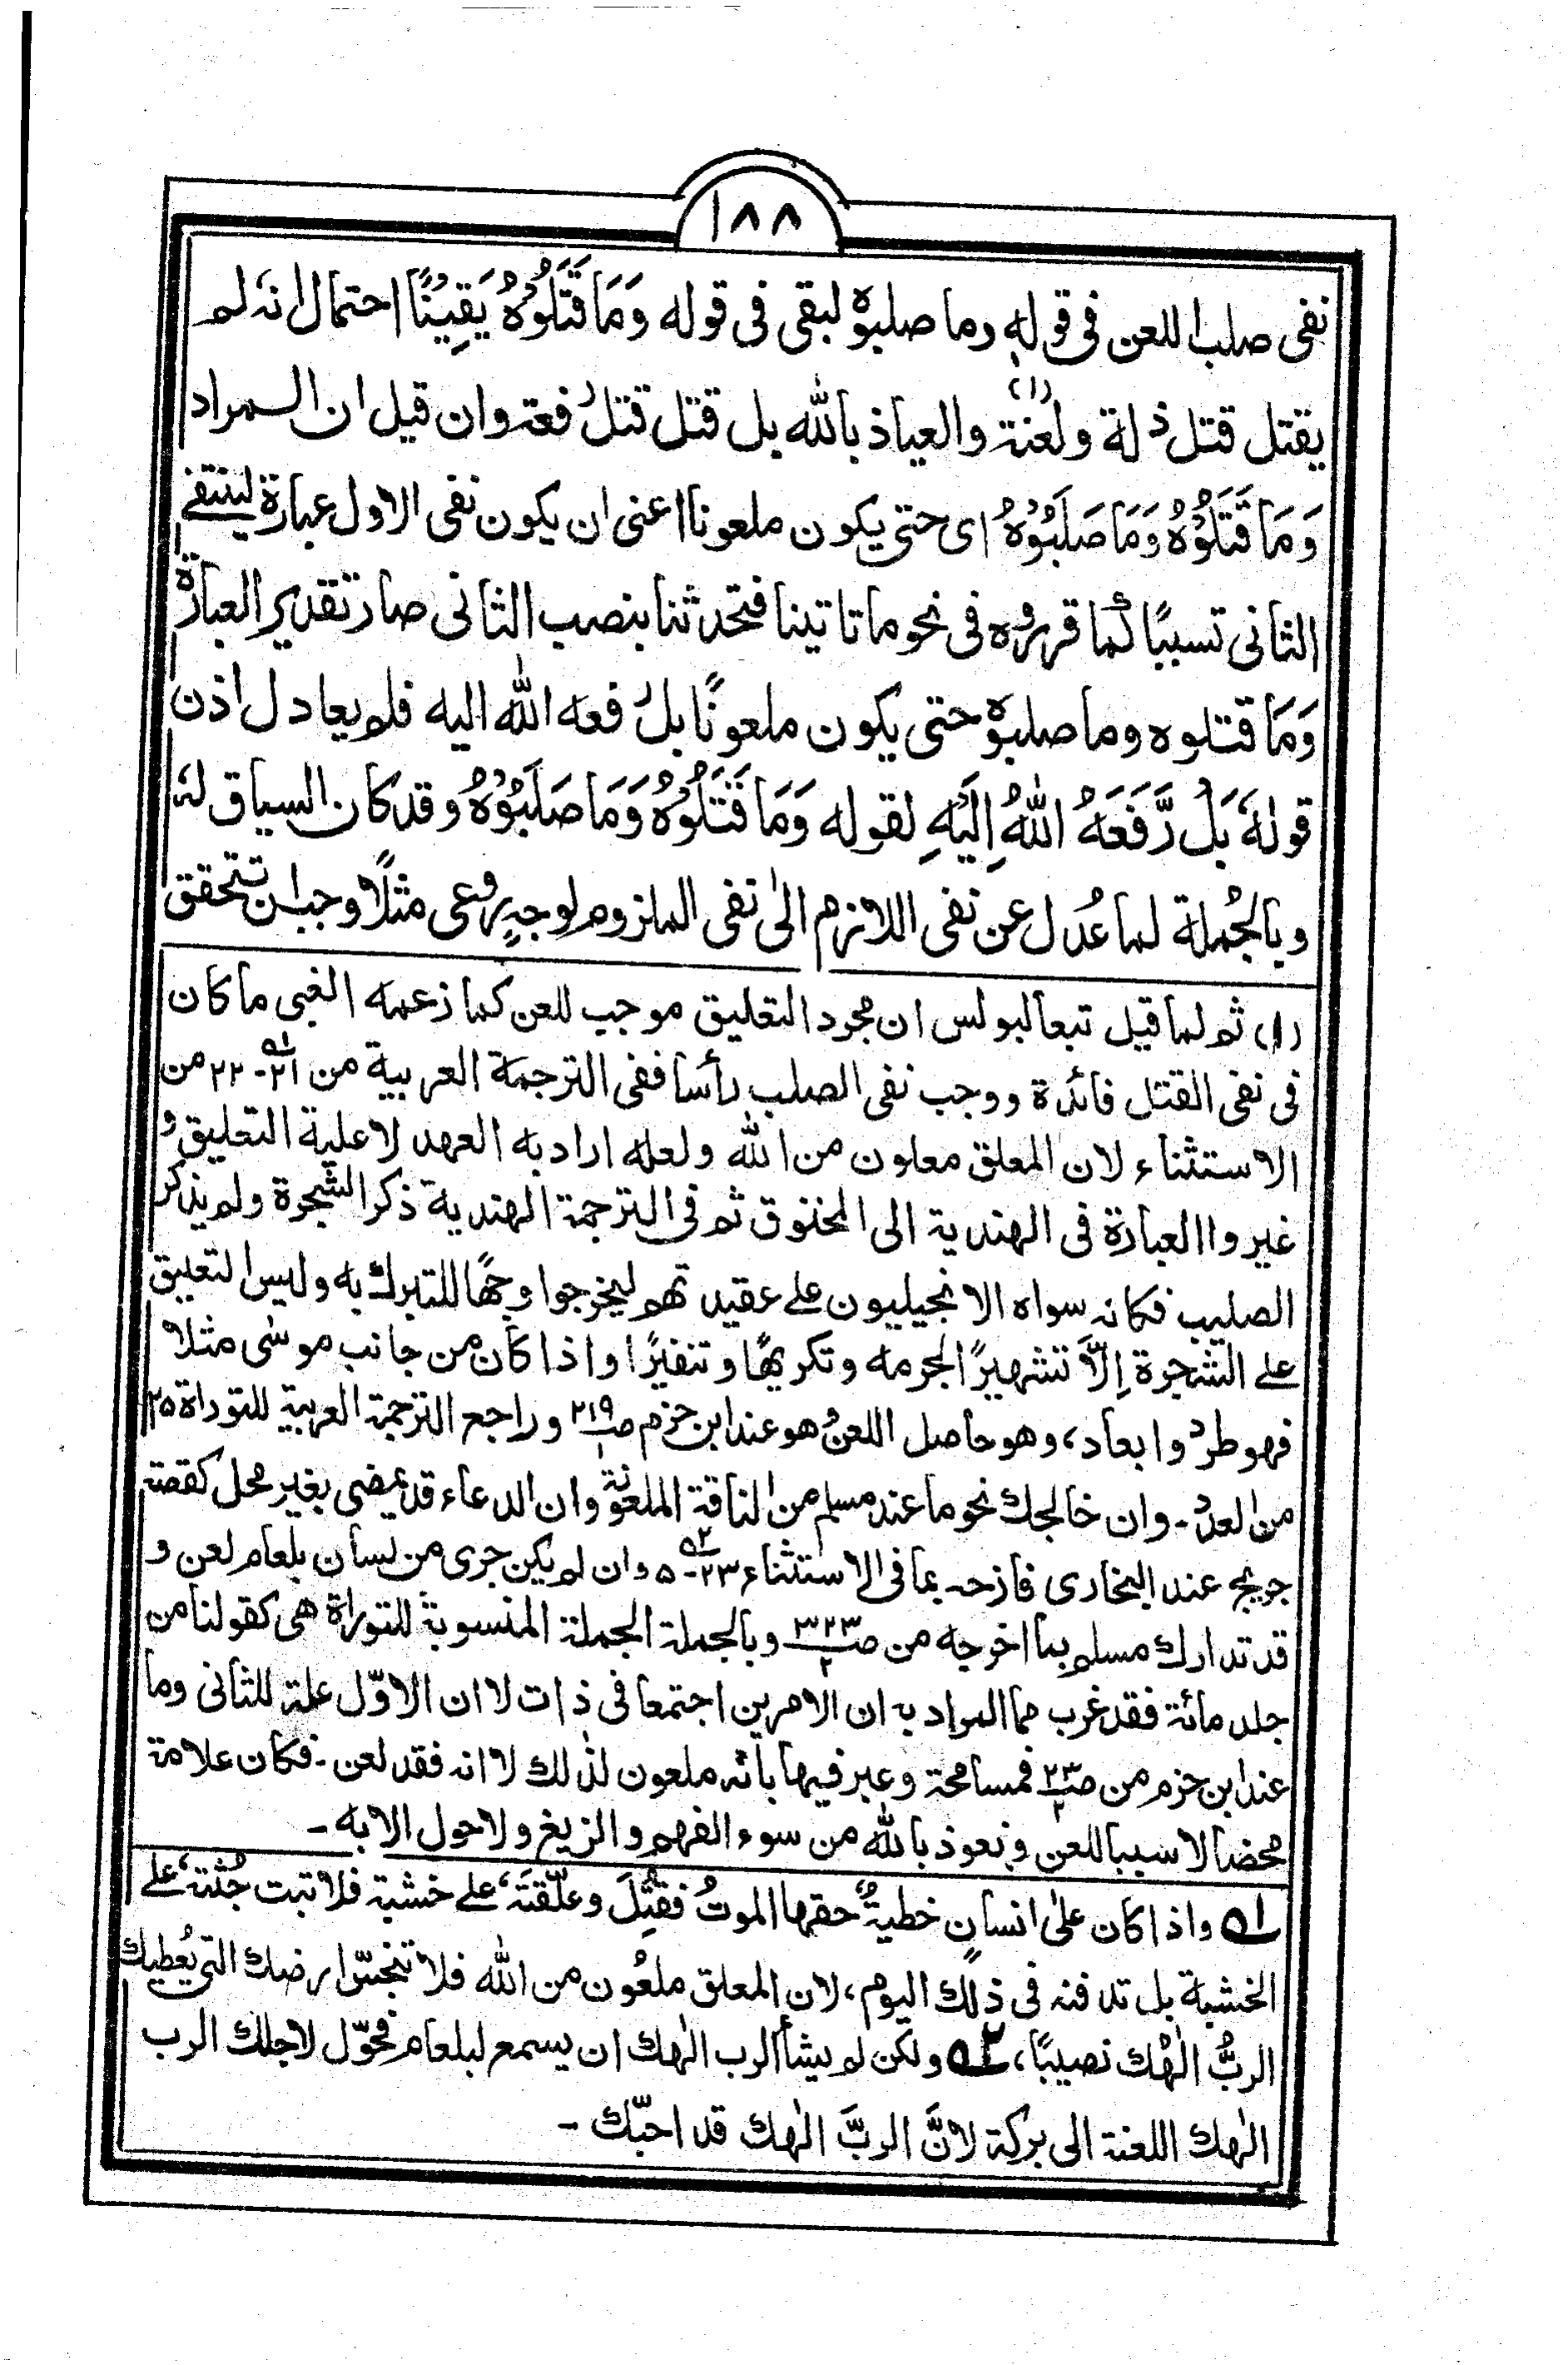 ١٨٨
نفى صلب اللعن فى قوله وما صلبوه لبقى فى قوله وَمَا قَتَلُوْهُ يَقِيْنًا احتمال انه لم
يقتل قتل ذلة ولعنة (١) والعياذ بالله بل قتل قتل رفعة وان قيل ان المراد
وَمَا قَتَلُوْهُ وَمَا صَلَبُوْهُ اى حتى يكون ملعونا اعنى ان يكون نفى الاول عبارة لينتفى
الثانى تسببًا كما قرروه فى نحو ما تاتينا فتحدثنا بنصب الثانى صار تقدير العبارة
وَمَا قتلوه وما صلبوه حتى يكون ملعونًا بل رفعه الله اليه فلم يعادل اذن
قوله بَلْ رَّفَعَهُ اللّٰهُ اِلَيْهِ لقوله وَمَا قَتَلُوْهُ وَمَا صَلَبُوْهُ وقد كان السياق له
وبالجُملة لما عُدل عن نفى اللازم الىٰ نفى الملزوم لوجهٍ روعى مثلًا وجب ان تتحقق
(١) ثم لما قيل تبعا لبولس ان مجرد التعليق موجب للعن كما زعمه الغبى ما كان
فى نفى القتل فائدة ووجب نفى الصلب رأسا ففى الترجمة العربية من ٢١-٢٢ من
الاستثناء لان المعلق معلون من الله ولعله اراد به العهد لا علية التعليق و
غيروا العبارة فى الهندية الى المخنوق ثم فى الترجمة الهندية ذكر الشجرة ولم يذكر
الصليب فكانه سواه الانجيليون على عقيدتهم ليخرجوا وجهًا للتبرك به وليس التعليق
على الشجرة اِلَّا تشهيرًا لجرمه وتكريهًا وتنفيرًا واذا كان من جانب موسٰى مثلا
فهو طردٌ وابعاد، وهو حاصل اللعن وهو عند ابن حزم صـ٢١٩/١ وراجع الترجمة العربية للتوراة ٢٥
من العدد۔ وان خالجك نحو ما عند مسلم من الناقة الملعونة وان الدعاء قد يمضى بغير محل كقصة
جريج عند البخارى فازحه بما فى الاستثناء ٢٣-٥ وان لم يكن جرى من لسان بلعام لعن و
قد تدارك مسلم بما اخرجه من صـ٣٢٣/٢ وبالجملة الجملة المنسوبة للتوراة هى كقولنا من
جلد مائة فقد غرب مما المراد به ان الامرين اجتمعا فى ذات لا ان الاوّل علة للثانى وما
عند ابن حزم من صـ٢٣/٢ فمسامحة وعبر فيها بانه ملعون لذٰلك لا انه فقد لعن۔ فكان علامة
محضا لا سببا للعن ونعوذ بالله من سوء الفهم والزيغ ولا حول الا به۔
؁١ واذا كان علىٰ انسانٍ خطيةٌ، حقها الموتُ فقُتِلَ وعلّقتَه، على خشبة فلا تبت جُثته، على
الخشبة بل تدفنه فى ذٰلك اليوم، لان المعلق ملعُون من الله فلا تنجسّ ارضك التى يُعطيك
الربُّ الٰهك نصيبًا، ؁٢ ولكن لم يشأ الرب الٰهك ان يسمع لبلعام فحوّل لاجلك الرب
الٰهك اللعنة الى بركة لانَّ الربَّ الٰهك قد احبّك۔